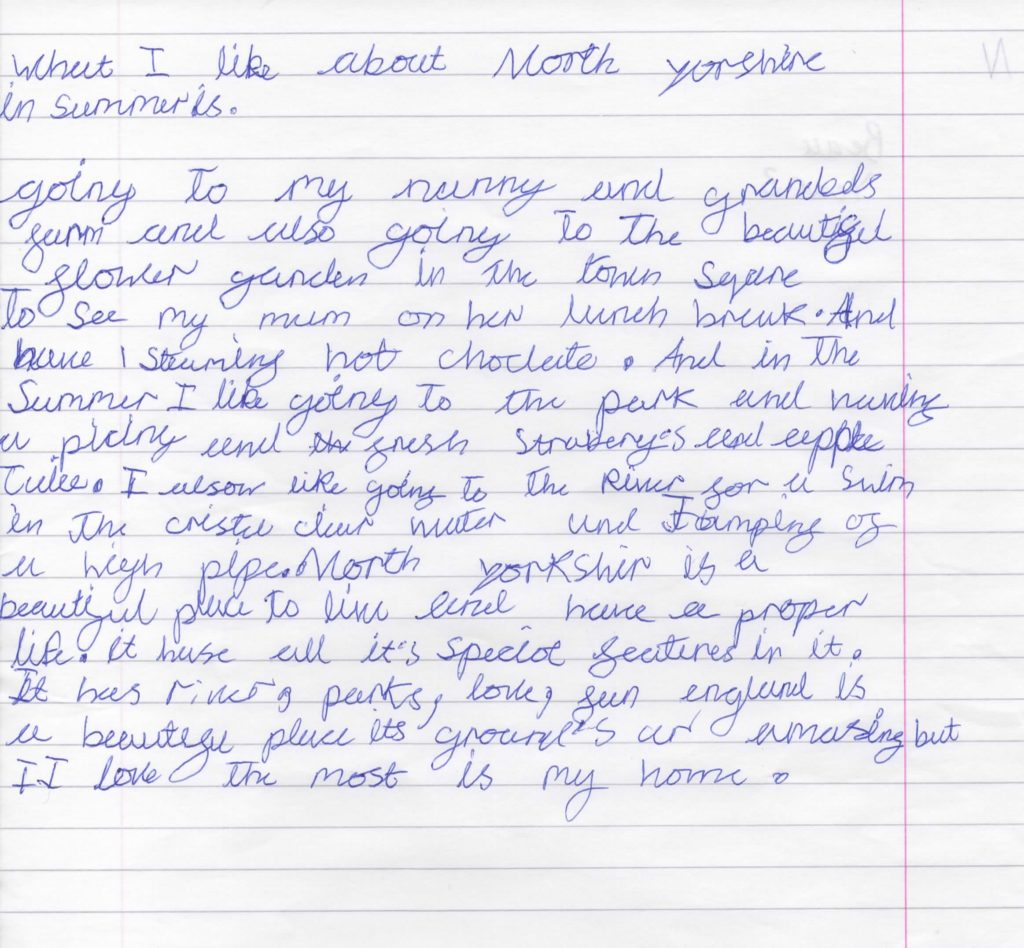 What I like about North yorshire
in summer is.
going to my nanny and grandads
farm and also going to the beautifel
flower garden in the town Sqare
To see my mum on her lunch break. And
have 1 steaming hot choclate. And in the
Summer I like going to the park and having
a picing and fresh Strabery's and apple
Tuice. I alsow like going to the River for a Swim
in the crista clear water and Jamping of
a high pipe. North yorkshir is a
beautiful place to live and have a proper
life. it huse all it's special featires in it.
It has river's parks, love, fun england is
a beautefu place its ground's ar amazing but
II love the most is my home.